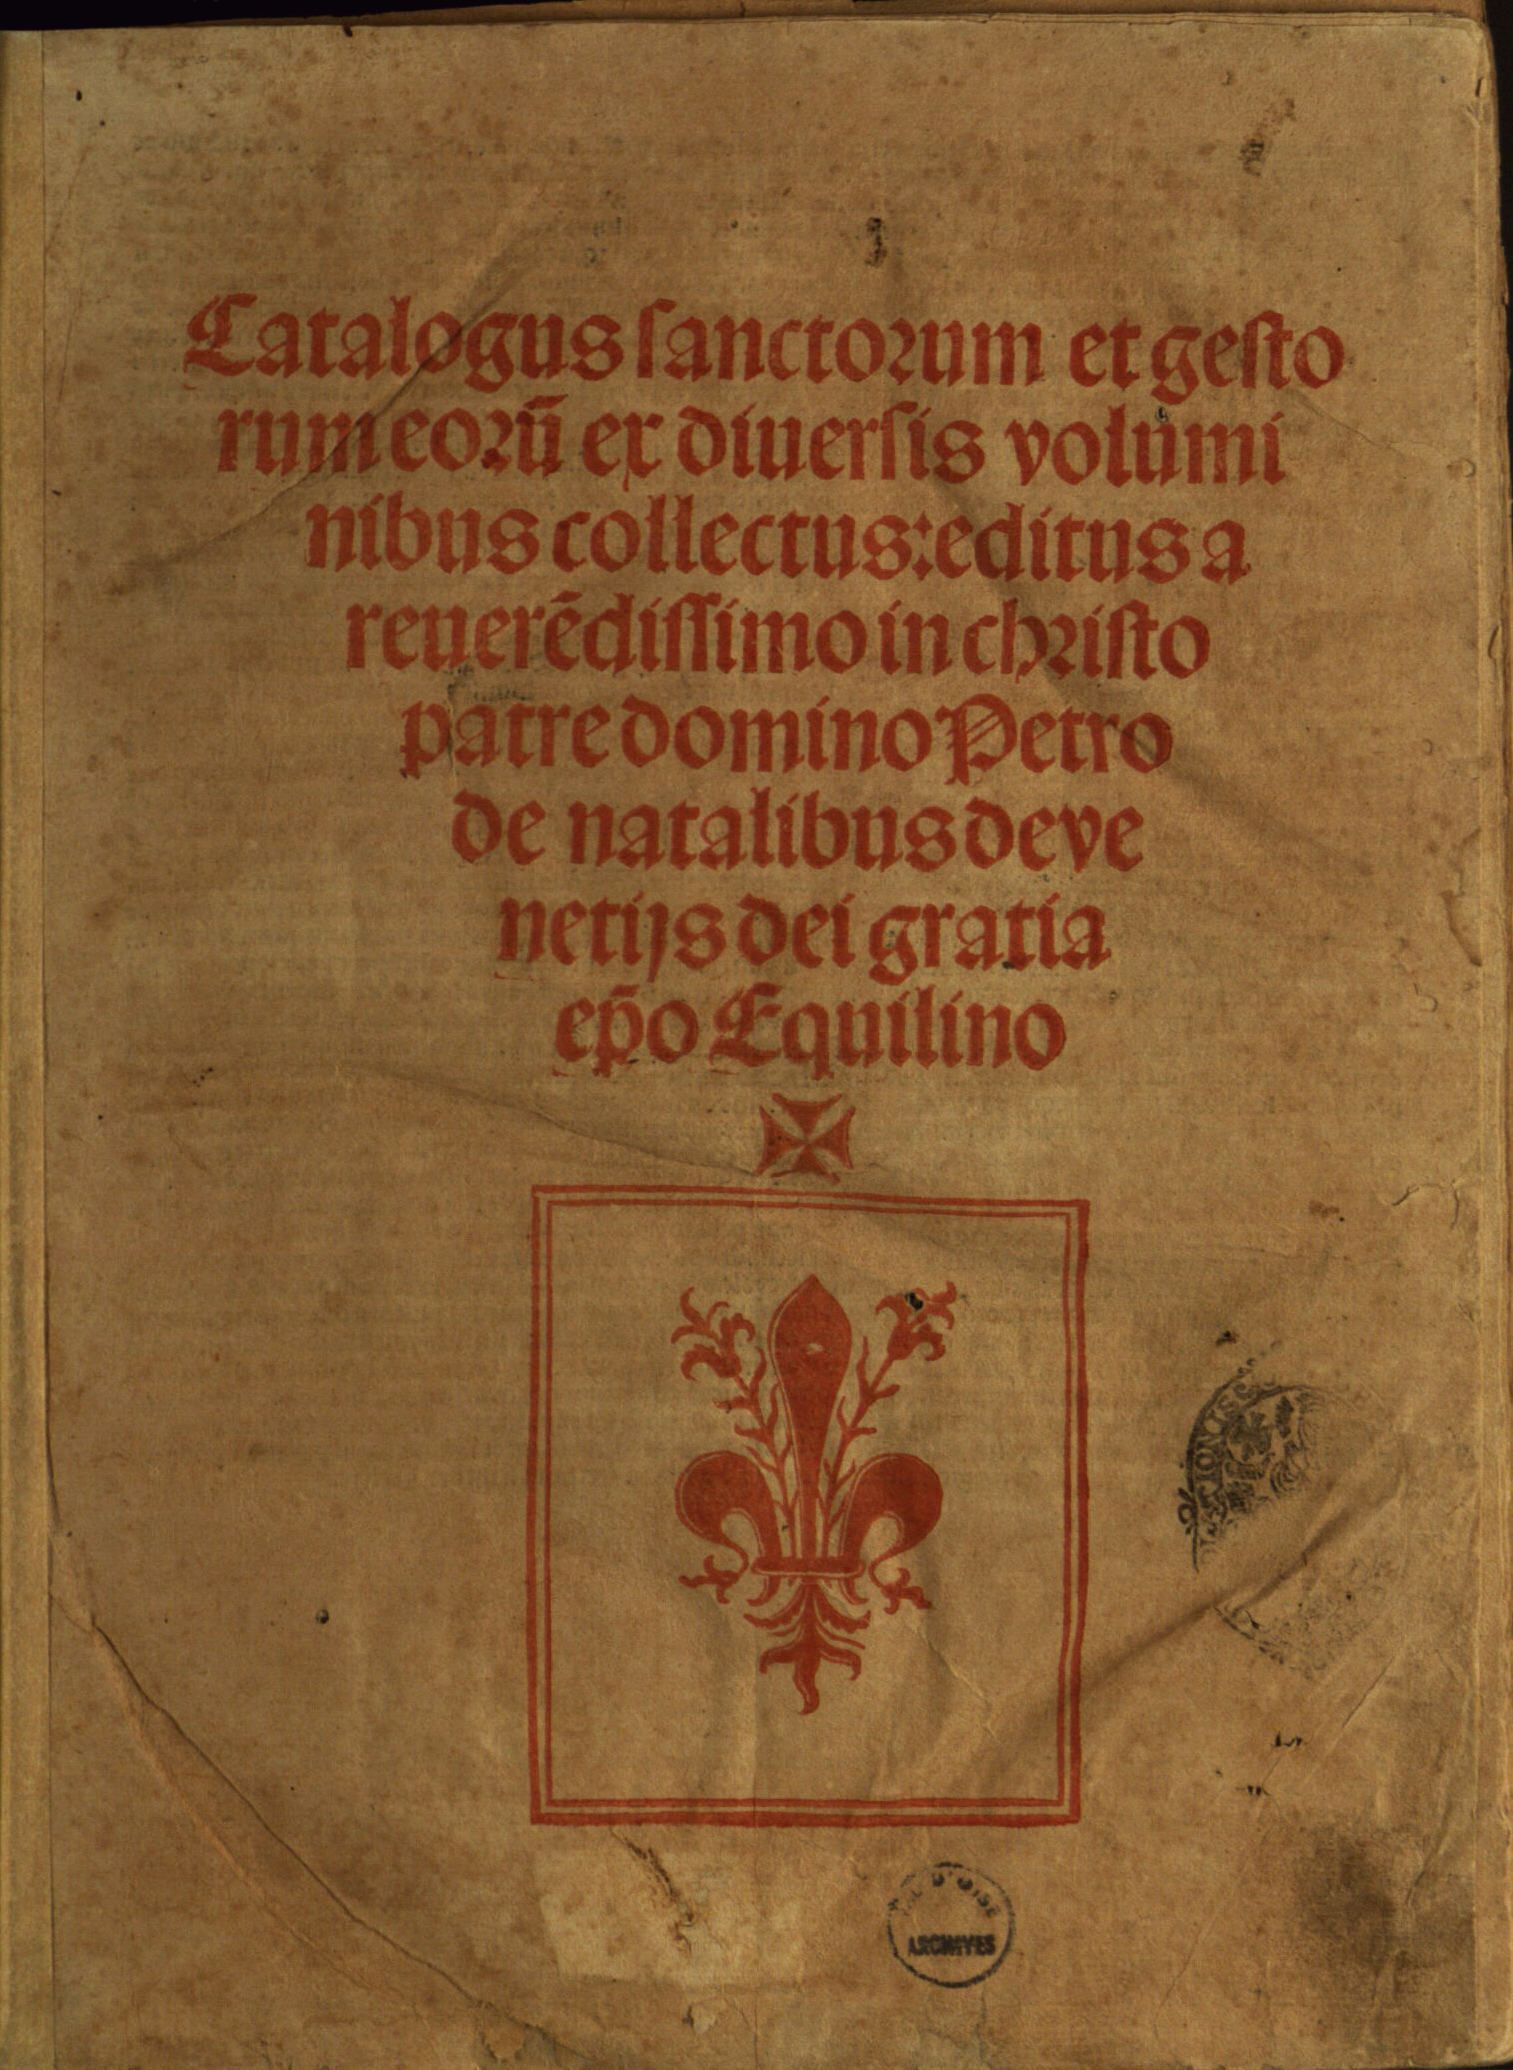 Catalogus sanctorum et gesto
rum eorū ex diuersis volumi
nibus collectus: editus a
reuerēdissimo in christo
patre domino Petro
de natalibus de ve
netijs dei gratia
ep̄o Equilino
D'OISE
ARCHIVES